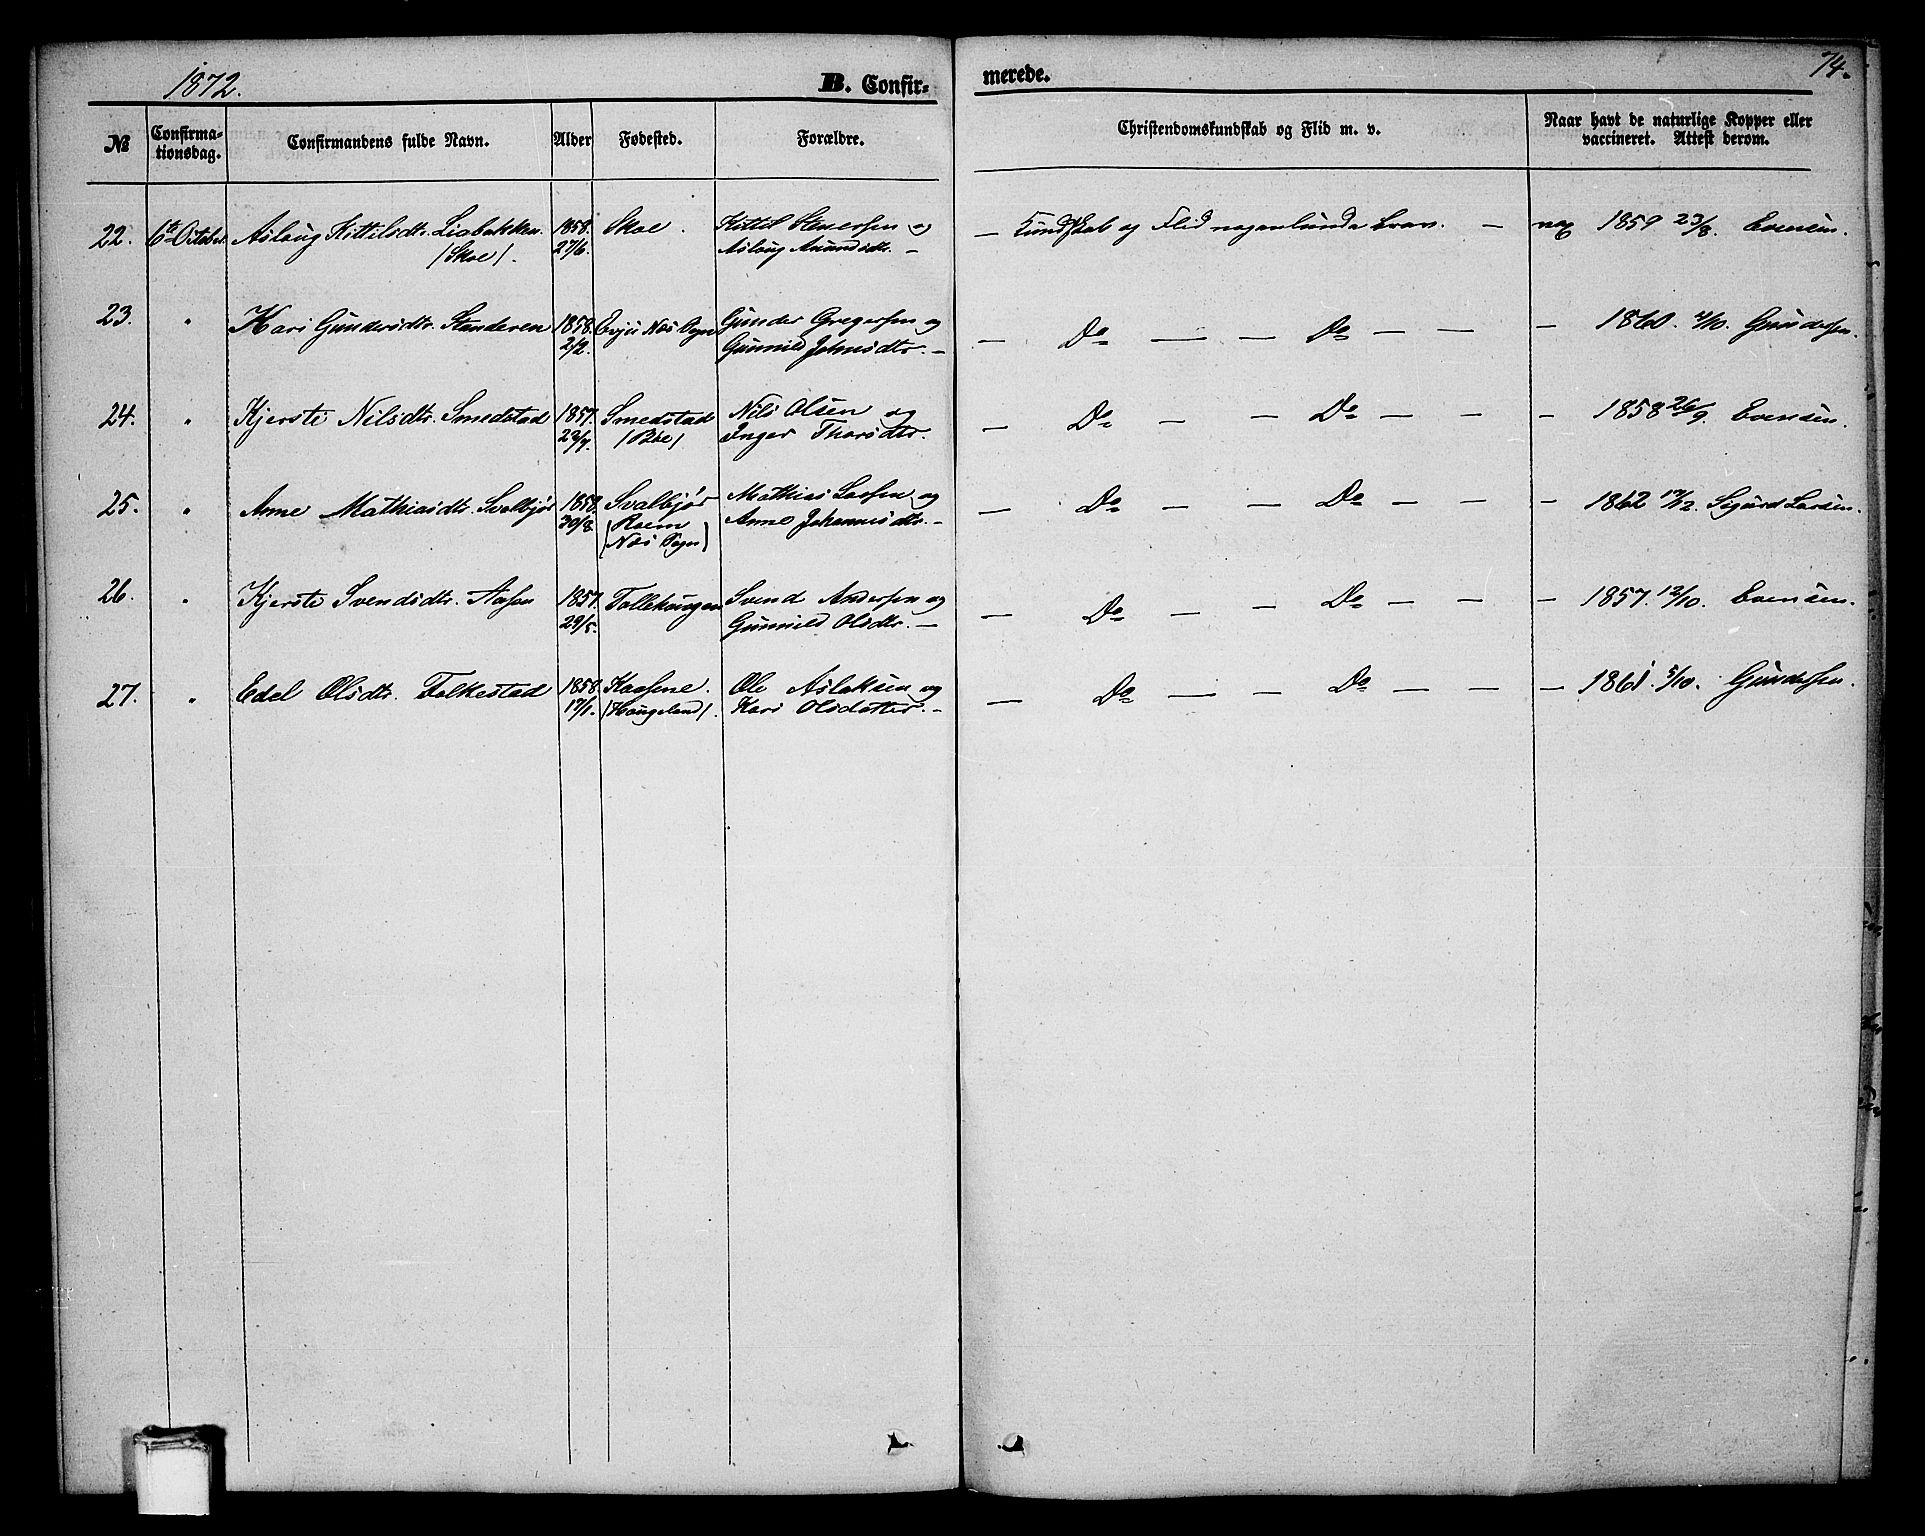 1872.
B. Confir-
merede.
74.
No
Confirma-
tionsdag.
Confirmandens fulde Navn.
Alder
Fødested.
Forældre.
Christendomskundskab og Flid m. v.
Naar havt de naturlige Kopper eller
vaccineret. Attest derom.
22. 6te October Aslaug Kittilsdtr. Liabakken. 1858. Skoe. Kittil Steersen og — Kundskab og Flid nogenlunde — vax 1859 23/8. Evensen.
/Skoe/. 27/6. Aslaug Anundsdtr. —
23. " Kari Gundersdtr. Standeren 1858. Evju Næs Sogn Gunder Gregersen og — Do — — Do — — — 1860. 4/10. Gundersen.
2/2. Gunnild Johnsdtr. —
24. " Kjersti Nilsdtr. Smedstad 1857. Smedstad Nils Olsen og — Do — — Do — — — 1858 26/9. Evensen.
/Bøe/ Inger Thorsdtr.
25. " Anne Mathiasdtr. Svalbjør 1858. Svalbjør Mathias Larsen og — Do — — Do — — — 1862 17/12. Sigurd Larsen.
30/8. (Roem Anne Johannisdtr. —
Næs Sogn)
26. " Kjersti Svendsdtr. Aasen 1857. Follekaugen Svend Andersen og — Do — — Do — — — 1857. 12/10. Evensen.
29/5. Gunnild Olsdtr. —
27. " Edel Olsdtr. Folkestad 1858. Kaasene. Ole Aslaksen og — Do — — Do — — — 1861. 5/10. Gundersen.
17/1. /Haugeland/. Kari Olsdatter. —